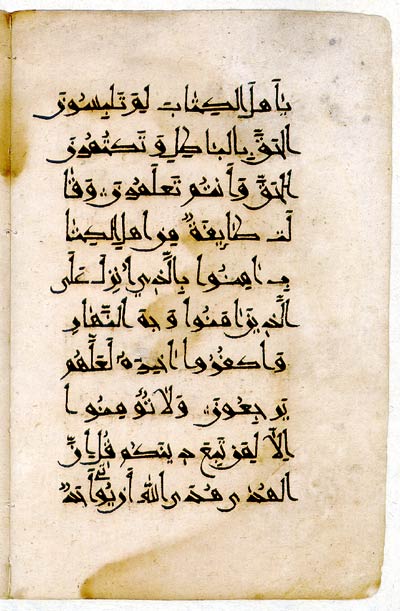 يَٰأَهلَ الكِتَابِ لِمَ تَلبِسُونَ
الحَقَّ بِالبَاطِلِ وَتَكتُمُونَ
الحَقَّ وَأَنتُم تَعلَمُونَ وَقَا
لَت طَايِفَةٌ مِن أَهلِ الكِتَا
بِ ءَامِنُوا بِالَّذِي أُنزِلَ عَلَى
الَّذِينَ ءَامَنُوا وَجهَ النَّهَارِ
وَاكفُرُوا ءَاخِرَهُ لَعَلَّهُم
يَرجِعُونَ وَلَا تُؤمِنُوا
إِلَّا لِمَن تَبِعَ دِينَكُم قُل إِنَّ
الهُدَى هُدَى اللَّهِ أَن يُؤتَى أَحَدٌ